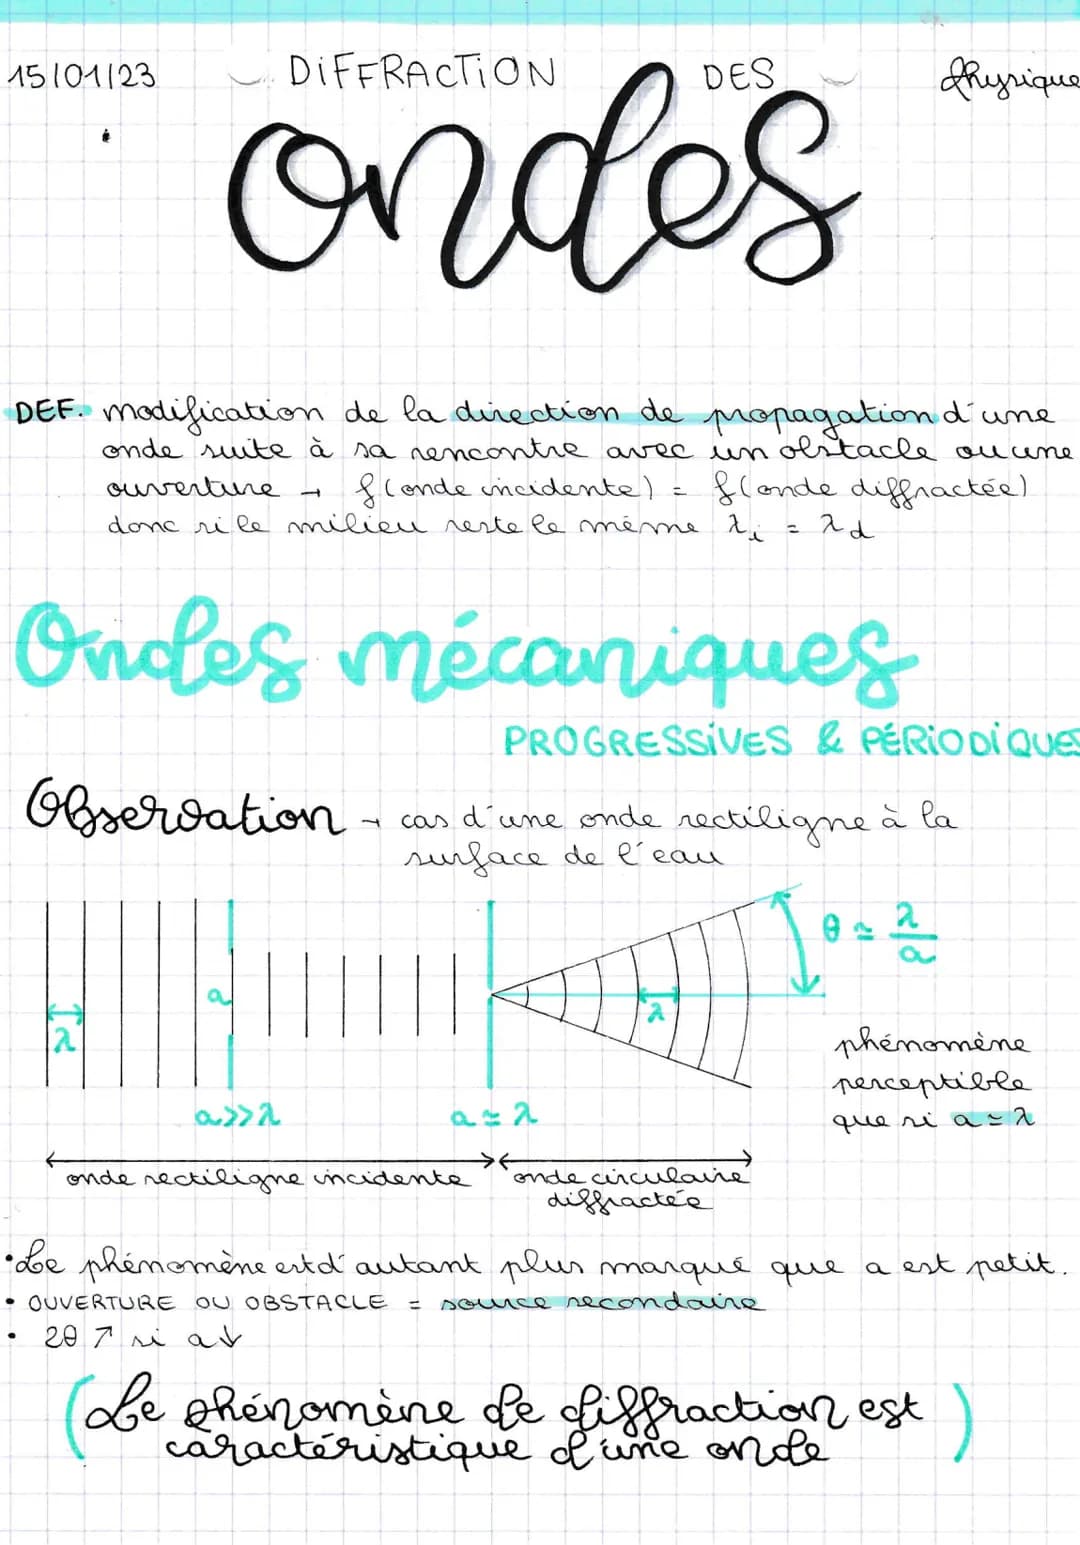 15/01/23 DIFFRACTION DES Physique
ondes
DEF. modification de la direction de propagation d'une
onde suite à sa rencontre avec un obstacle ou une
ouverture → f(onde incidente) = f(onde diffractée)
donc si le milieu reste le même λi = λd
Ondes mécaniques
PROGRESSIVES & PÉRIODIQUES
Observation → cas d'une onde rectiligne à la
surface de l'eau
θ ≃ λ/a
a
λ
λ
phénomène
perceptible
que si a ≃ λ
a>>λ
a ≃ λ
onde rectiligne incidente
onde circulaire
diffractée
• Le phénomène est d'autant plus marqué que a est petit.
• OUVERTURE OU OBSTACLE = source secondaire
• 2θ ↗ si a↓
(Le phénomène de diffraction est
caractéristique d'une onde)